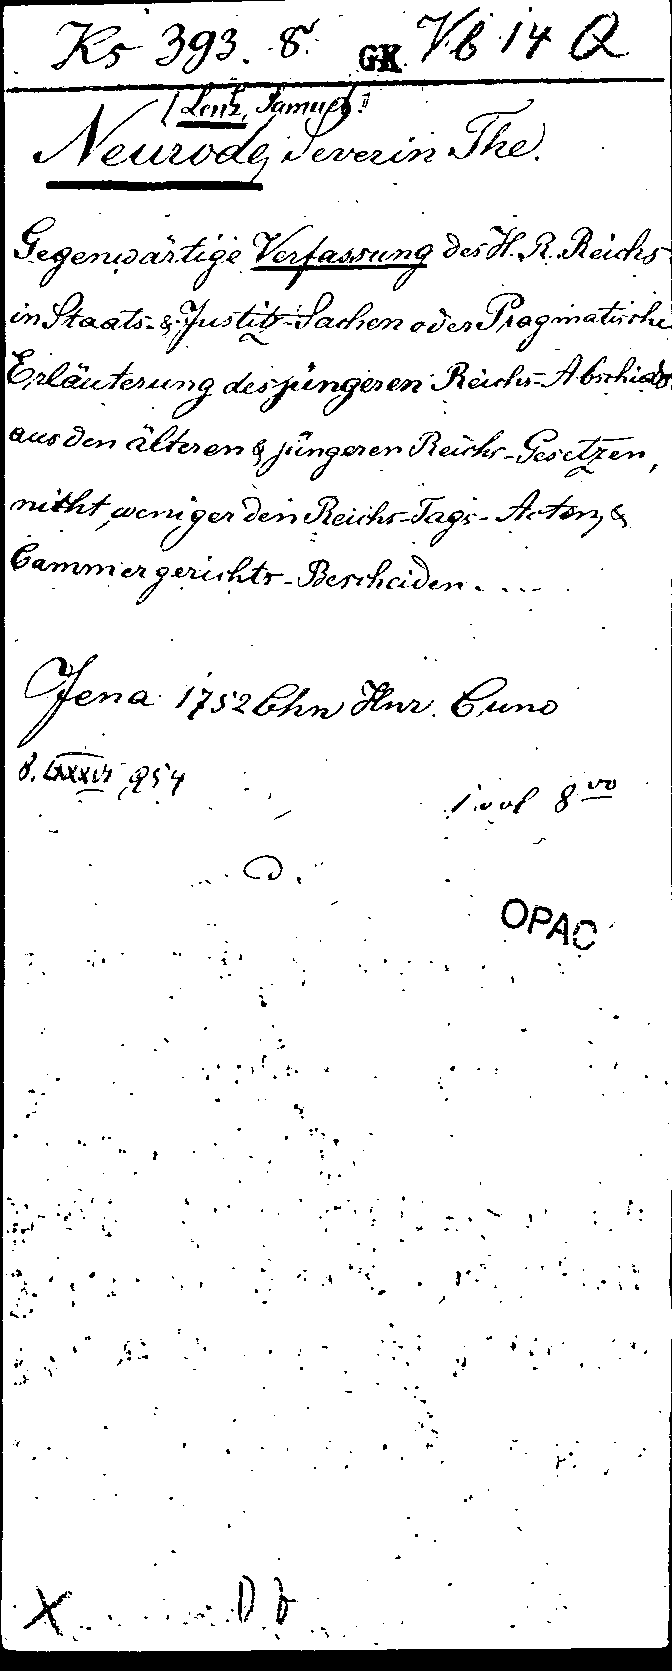 Ks 393. 8. GK Vb 14 Q
[Lenz, Samuel]
Neurode, Severin The.
Gegenwärtige Verfassung des H. R. Reichs
in Staats- & Justitz-Sachen oder Pragmatische
Erläuterung des jüngeren Reichs-Abschieds
aus den älteren & jüngeren Reichs-Gesetzen,
nicht weniger den Reichs-Tags-Acten, &
Cammergerichts-Bescheiden....
Jena 1752 Chn Hnr. Cuno
8. LXXXVI, 954
1 vol 8vo
OPAC
X D b